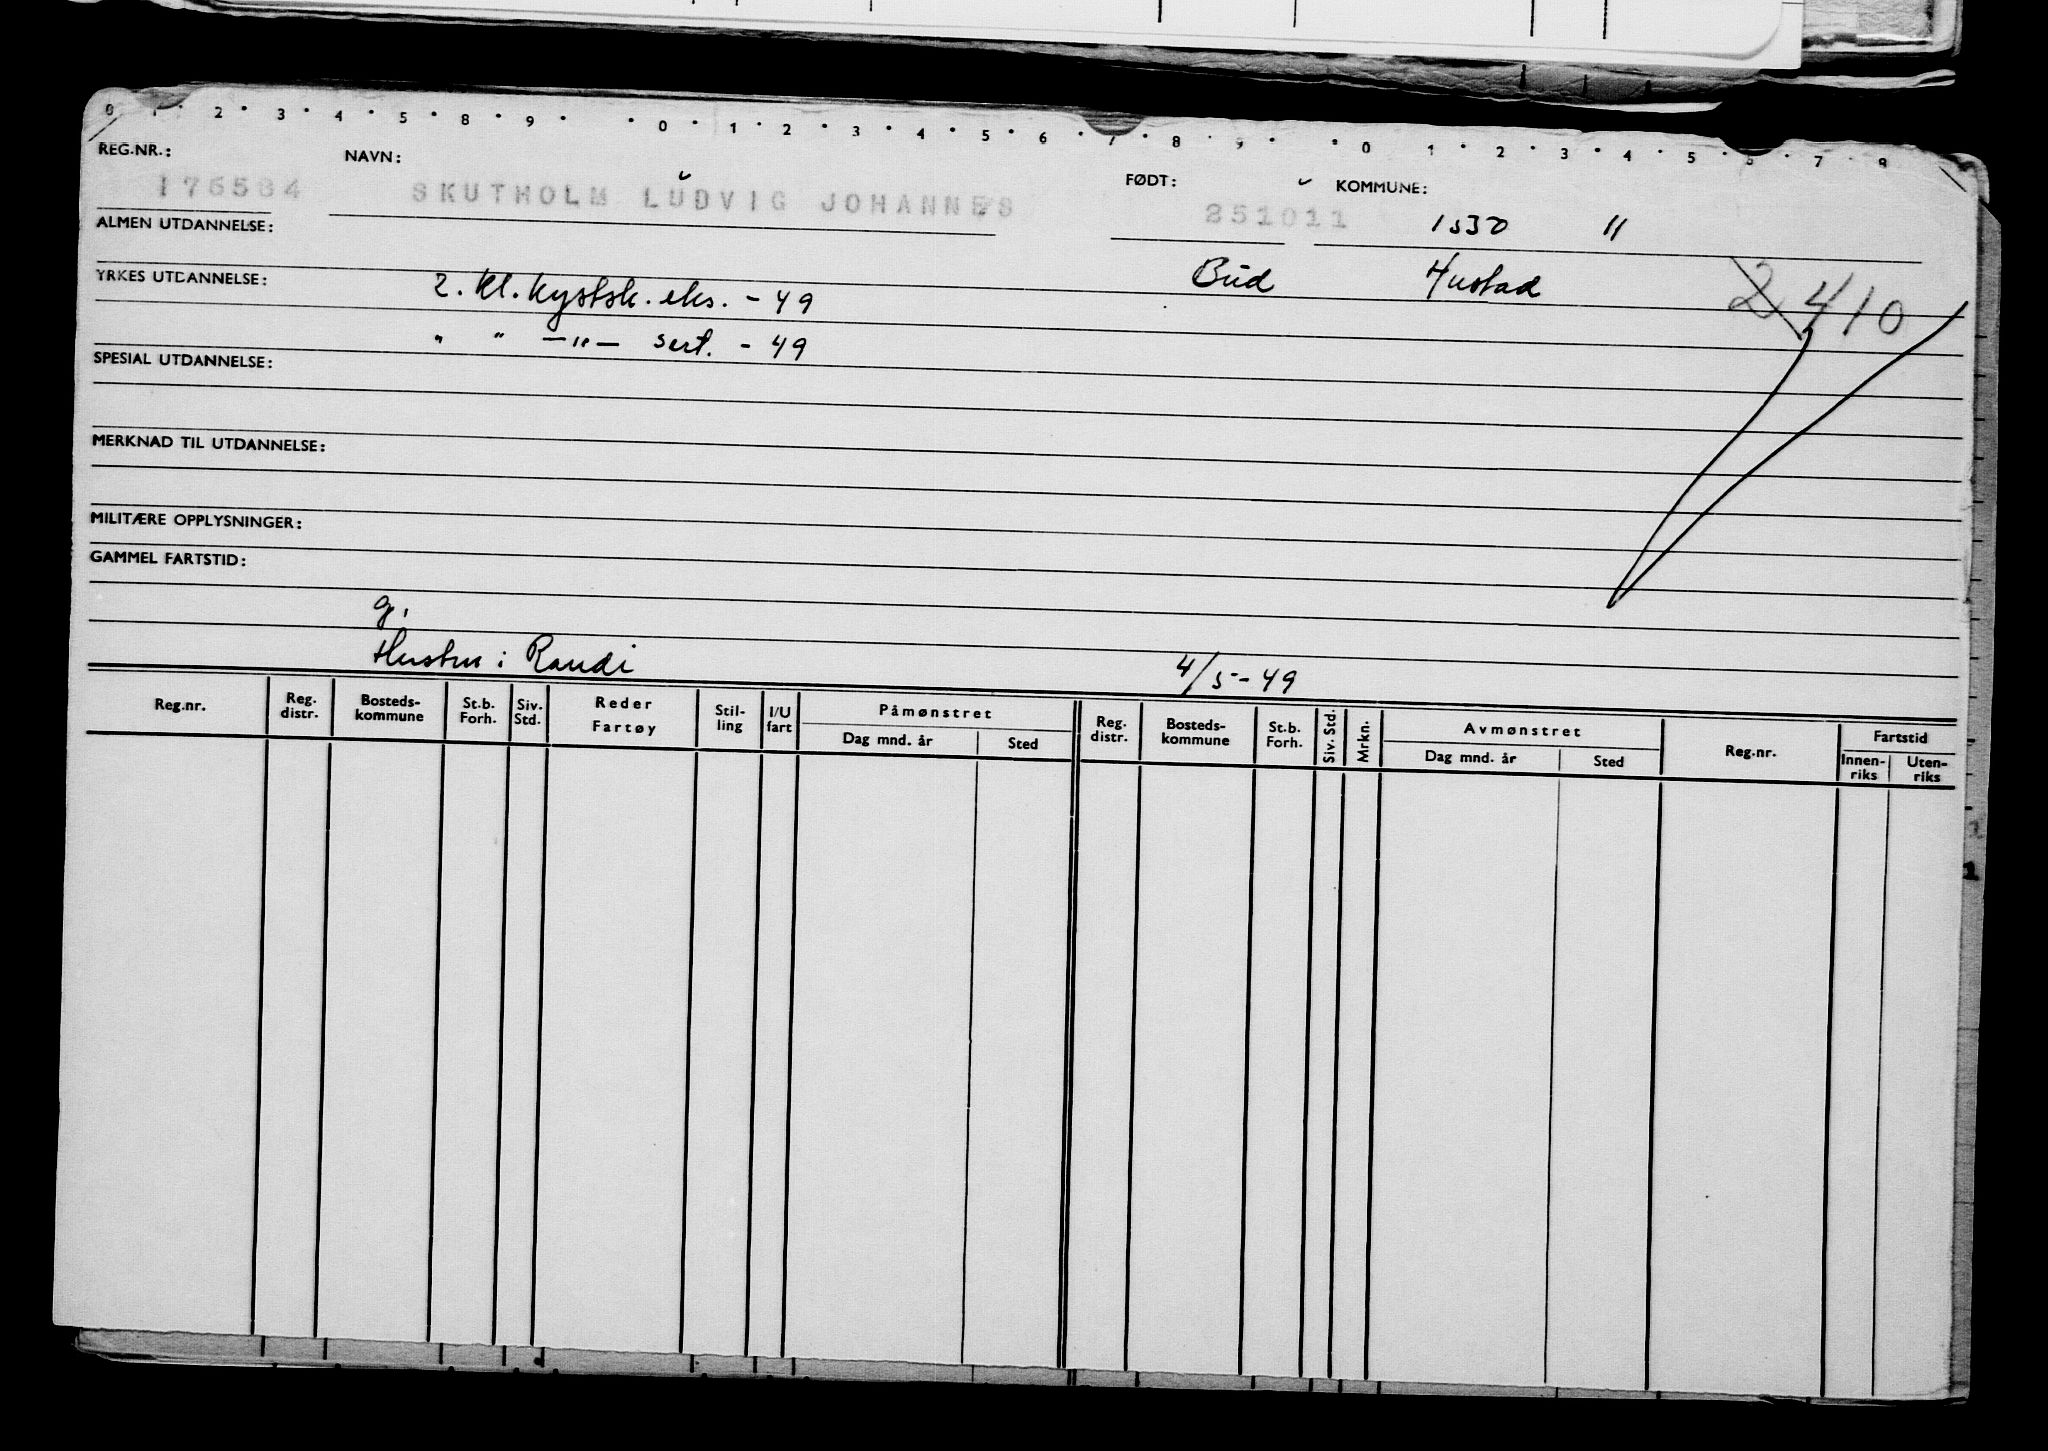 0 1 2 3 4 5 8 9 0 1 2 3 4 5 6 7 8 9 0 1 2 3 4 5 6 7 8
REG.NR.: NAVN: FØDT: KOMMUNE:
176584 SKUTHOLM LUDVIG JOHANNES 251011 1530 "
ALMEN UTDANNELSE:
Bud Hustad
YRKES UTDANNELSE: 2. kl. kystsk. eks. - 49 2 410
" " -"- sert. - 49
SPESIAL UTDANNELSE:
MERKNAD TIL UTDANNELSE:
MILITÆRE OPPLYSNINGER:
GAMMEL FARTSTID:
g.
Hustru: Randi 4/5-49
Reg.nr. Reg. distr. Bosteds-kommune St.b. Forh. Siv. Std. Reder Fartøy Stil-ling I/U fart Påmønstret Dag mnd. år Sted Reg. distr. Bosteds-kommune St.b. Forh. Siv. Std. Mrkn. Avmønstret Dag mnd. år Sted Reg.nr. Fartstid Innen-riks Uten-riks